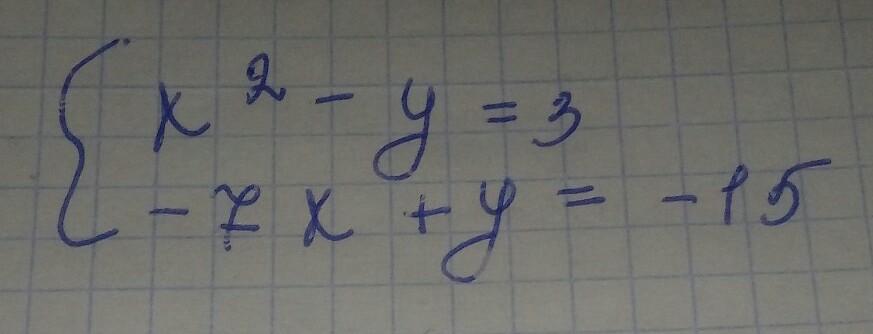 x² - y = 3
-7x + y = -15